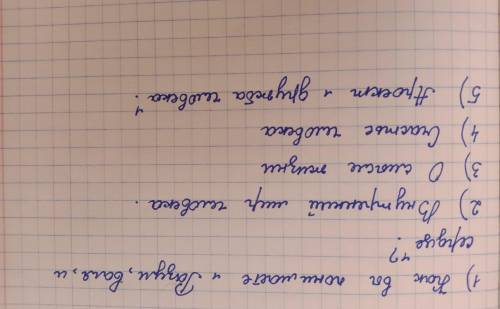 1) Как вы понимаете "Разум, воля, и
сердце"?
2) Внутренний мир человека.
3) О смысле жизни
4) Счастье человека
5) Проект "дружба человека".